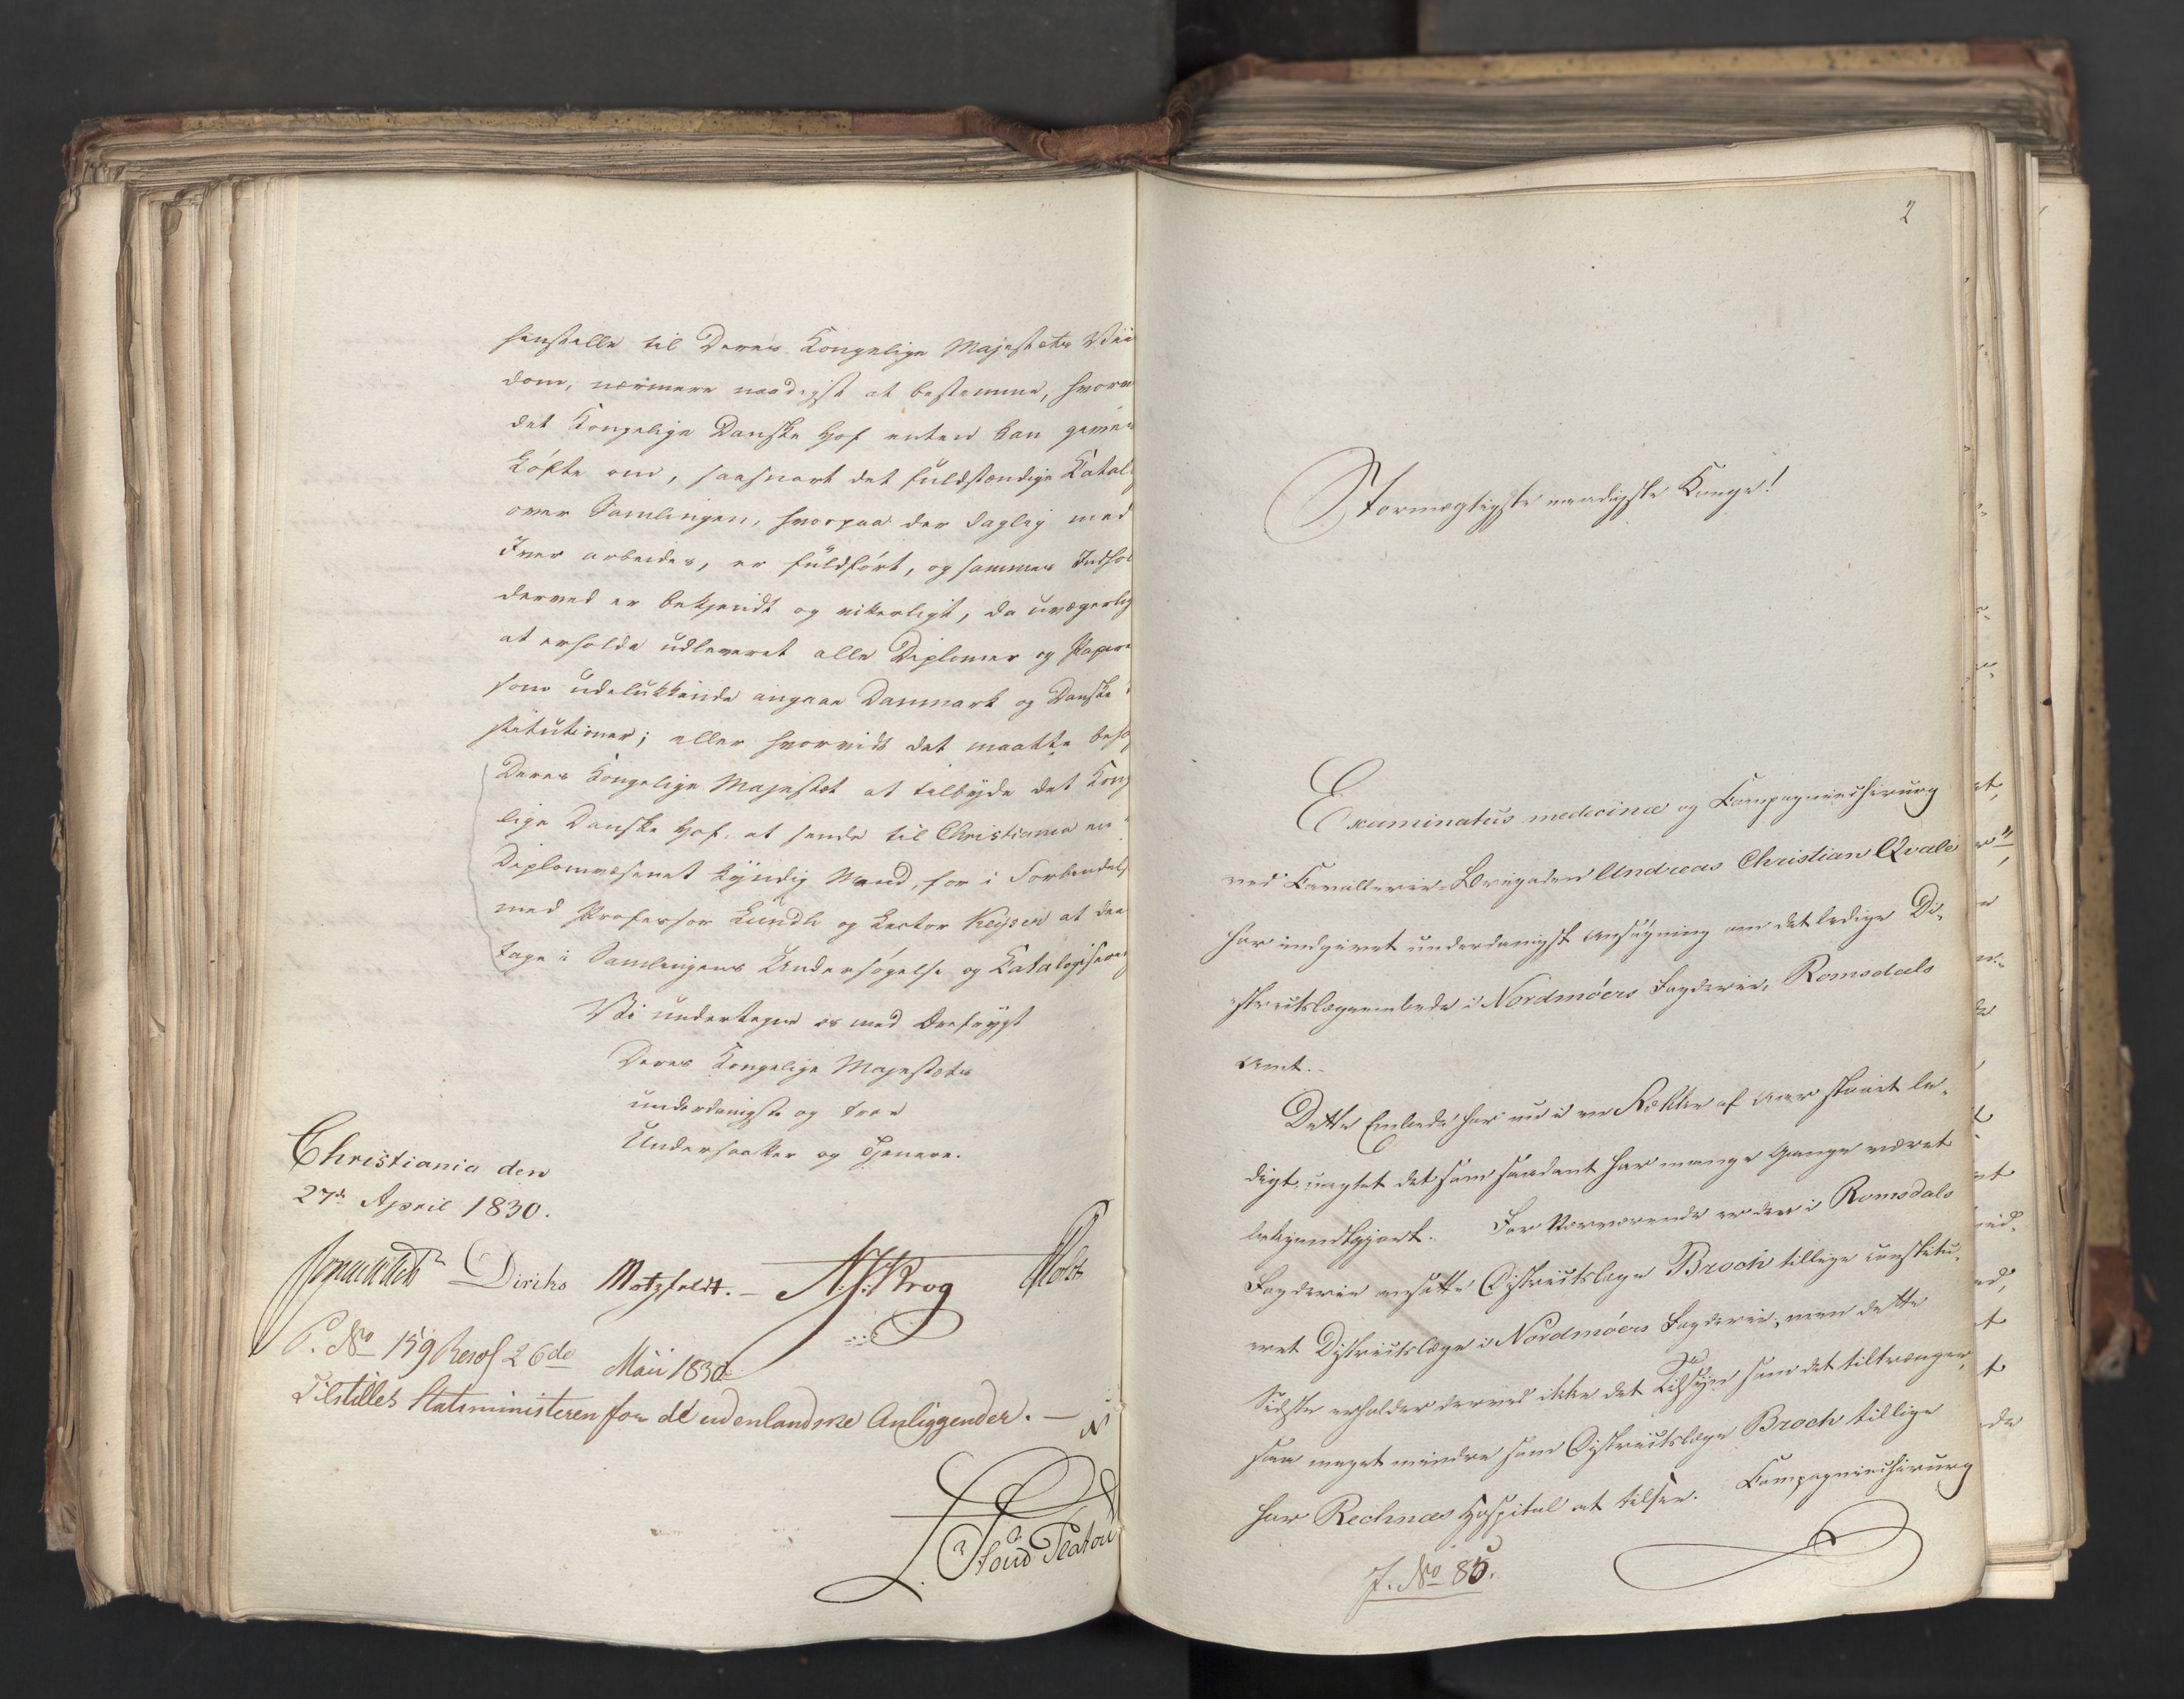 henstille til Deres Kongelige Majestæts Viis
dom, nærmere naadigst at bestemme, hvorvi
det Kongelige Danske Hof enten kan gives
Løfte om, saasnart det fuldstændige Katal
over Samlingen, hvorpaa der daglig med
Iver arbeides, er fuldført, og sammes Indhol
derved er bekjendt og vitterligt, da uvægerlig
at erholde udleveret alle Diplomer og Papire
som udelukkende angaae Danmark og Danske
stitutioner; eller hvorvidt det maatte beha
Deres Kongelige Majestæt at tilbyde det Kong
lige Danske Hof, at sende til Christiania en i
Diplomvæsenet kyndig Mand, for i Forbindels
med Professor Lundh og Lector Keyser at del
tage i Samlingens Undersøgelse og Katalogisering
Vi undertegne os med Ærefrygt
Deres Kongelige Majestæts
underdanigste og troe
Undersaatter og Tjenere.
Christiania den
27de April 1830.
Diriks Motzfeldt. N. J. Krog Holst
P. No 159 Resol 26de Maii 1830
Tilstilles Statsministeren for de udenlandske Anliggender.
Due
2
Stormægtigste naadigste Konge!
Examinatus medicinæ og Compagniechirurg
ved Cavallerie-Brigaden Andreas Christian Qvale
har indgivet underdanigst Ansøgning om det ledige Di-
strictslægeembede i Nordmøers Fogderie, Romsdals
Amt.
Dette Embede har nu i en Række af Aar staaet le-
digt, uagtet det som saadant har mange Gange været
bekjendtgjort. For Nærværende er den i Romsdals
Fogderie ansatte Districtslæge Broch tillige constitu-
eret Districtslæge i Nordmøers Fogderie, men dette
Sidste erholder derved ikke det Tilsyn som det tiltrænger,
saa meget mindre som Districtslæge Broch tillige
har Recknæs Hospital at tilsee. Compagniechirurg
J. No 85.